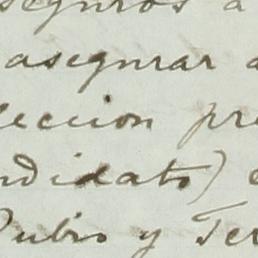 seguros a
asegurar a
leccion pre
ndidato) e
Rubio y Ter